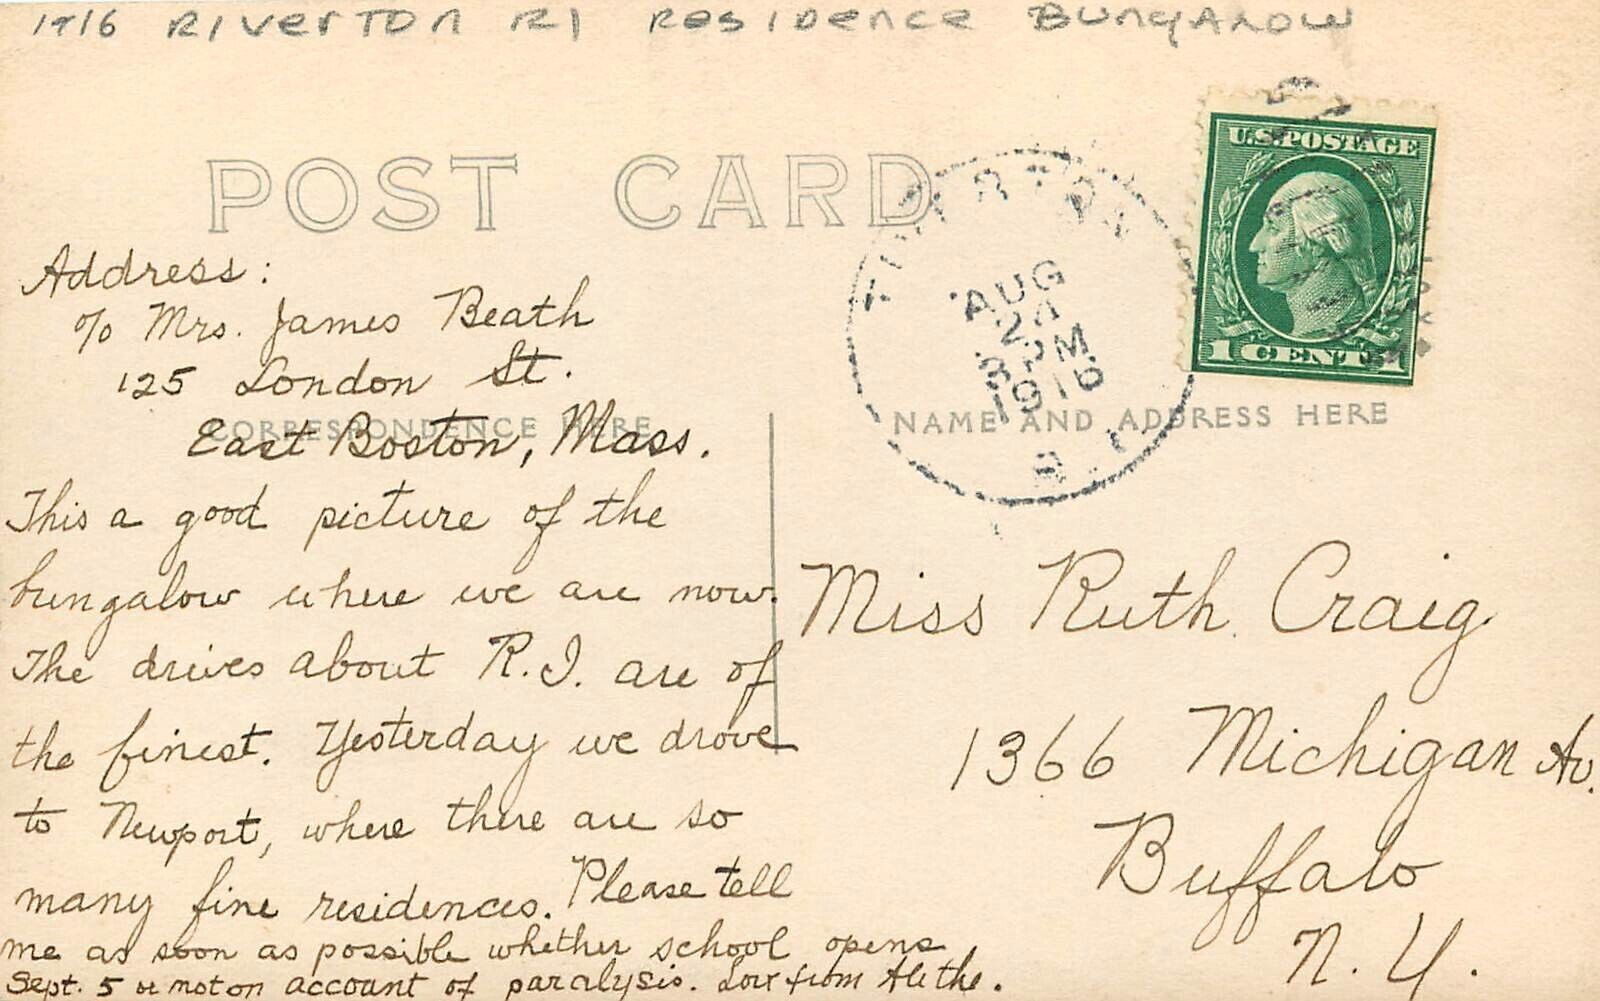 1916 RIVERTON RI RESIDENCE BUNGALOW
POST CARD
U.S. POSTAGE
1 CENT 1
AUG
8 PM
1916
R.I.
CORRESPONDENCE HERE
NAME AND ADDRESS HERE
Address:
c/o Mrs. James Beath
125 London St.
East Boston, Mass.
This a good picture of the
bungalow where we are now.
The drives about R.I. are of
the finest. Yesterday we drove
to Newport, where there are so
many fine residences. Please tell
me as soon as possible whether school opens
Sept. 5 or not on account of paralysis. Love from Alethe.
Miss Ruth Craig
1366 Michigan Av.
Buffalo
N.Y.